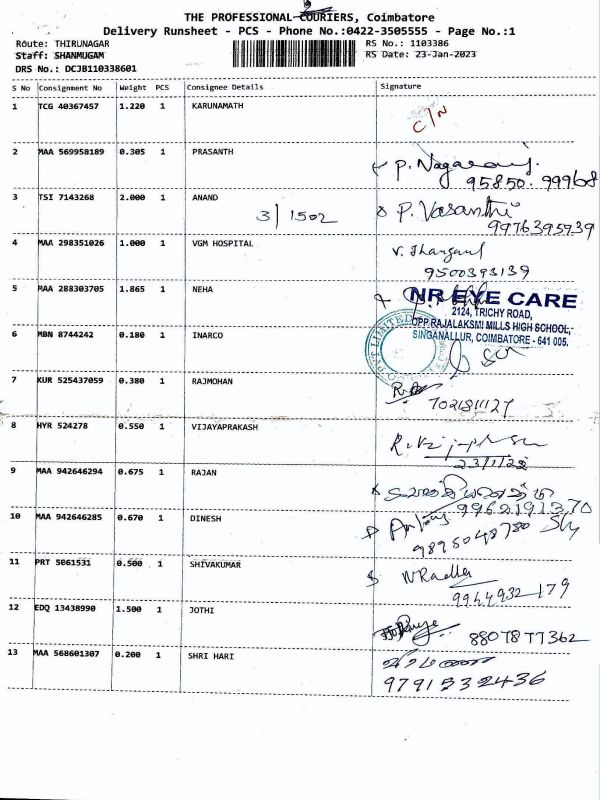 THE PROFESSIONAL COURIERS, Coimbatore
Delivery Runsheet - PCS - Phone No.:0422-3505555 - Page No.:1
Route: THIRUNAGAR RS No.: 1103386
Staff: SHANMUGAM RS Date: 23-Jan-2023
DRS No.: DCJB110338601
S No Consignment No Weight PCS Consignee Details Signature
1 TCG 40367457 1.220 1 KARUNAMATH C/N
2 MAA 569958189 0.305 1 PRASANTH P. Nagaraj.
95850. 99968
3 TSI 7143268 2.000 1 ANAND P. Vasanthi
3/1502 9976395939
4 MAA 298351026 1.000 1 VGM HOSPITAL
9500393139
5 MAA 288303705 1.865 1 NEHA NR EYE CARE
2124, TRICHY ROAD,
OPP.RAJALAKSMI MILLS HIGH SCHOOL,
SINGANALLUR, COIMBATORE - 641 005.
6 MBN 8744242 0.180 1 INARCO
7 KUR 525437059 0.380 1 RAJMOHAN
7021811127
8 HYR 524278 0.550 1 VIJAYAPRAKASH
23/1/23
9 MAA 942646294 0.675 1 RAJAN
9962191370
10 MAA 942646285 0.670 1 DINESH
9895048780
11 PRT 5061531 0.500 1 SHIVAKUMAR N Radha
9944932179
12 EDQ 13438990 1.500 1 JOTHI
8807877362
13 MAA 568601307 0.200 1 SHRI HARI
9791532436